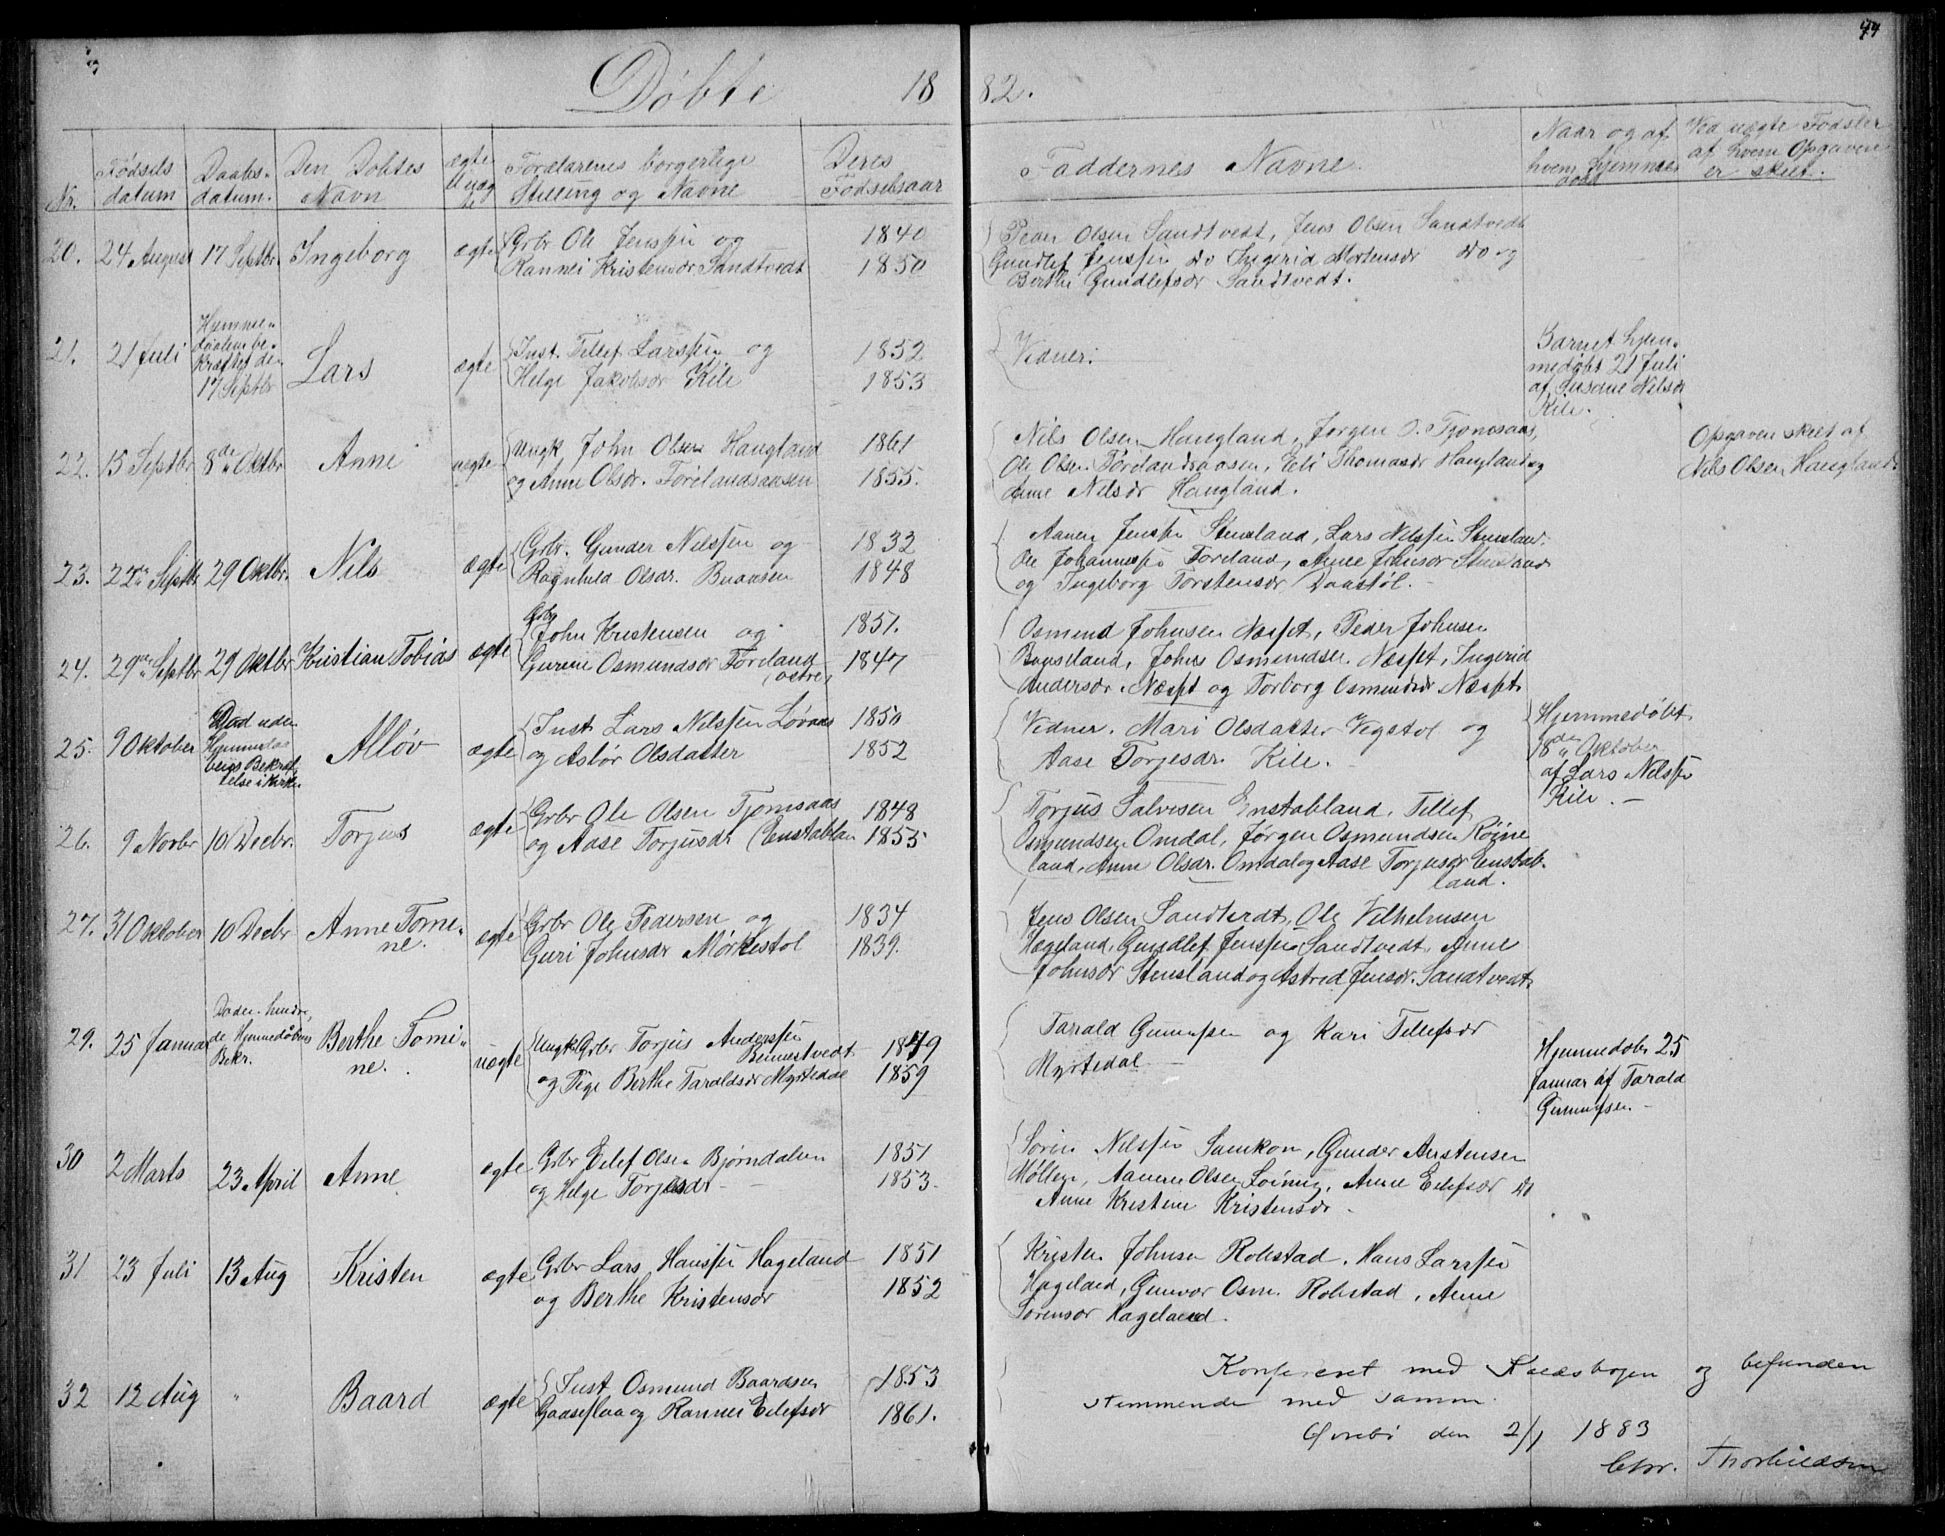 74
Døbte 18 82.
Nr.
Fødsels
datum
Daabs-
datum.
Den Døbtes
Navn
ægte
el. uæg
te
Forældrenes borgerlige
Stilling og Navne
Deres
Fødselsaar
Faddernes Navne.
Naar og af
hvem hjemme
døbt
Ved uægte Fødsler
af hvem Opgaven
er skeet.
20. 24 August 17 Septbr Ingeborg ægte Grbr Ole Jenssen og 1840
Rannei Kristensdr Sandtvedt 1850
Peder Olsen Sandtvedt, Jens Olsen Sandtvedt
Gundlef Jenssen do Ingerid Mortensdr do og
Berthe Gundlefsdr Sandtvedt.
21. 21 Juli
Hjemme-
daaben be-
kræftet den
17 Septbr
Lars ægte Inst. Tellef Larssen og 1852
Helge Jakobsdr Kile 1853
Vidner:
Barnet hjem-
medøbt 21 Juli
af Susanne Nilsdr
Kile.
22. 15 Septbr 8de Oktbr Anne uægte Ungk. John Olsen Haugland 1861
og Anne Olsdr. Førelandsaasen 1855.
Nils Olsen Haugland, Jørgen O. Tjomsaas,
Ole Olsen Førlandsaasen, Eli Thomasdr Haugland og
Anne Nilsdr Haugland.
Opgaven skeet af
Nils Olsen Haugland
23. 22de Septbr 29 Oktbr. Nils ægte Grbr. Gunder Nilssen og 1832
Ragnhild Olsdr. Buaasen 1848
Aanen Jenssen Stensland, Lars Nilssen Stensland.
Ole Johannessen Foreland, Anne Johnsdr Stensland
og Ingeborg Torstensdr Daastøl.
24. 29de Septbr 29 Oktbr Kristian Tobias ægte Grbr John Kristensen og 1851.
Gurine Osmundsdr Føreland 1847
(østre)
Osmund Johnsen Næsset, Peder Johnsen
Bouseland, Johns Osmundsen Næsset, Ingerid
Andersdr. Næsset og Torborg Osmundsdr Næsset
25. 9 Oktober
Død uden
Hjemmedaa
bens Bekræf-
telse i Kirken
Alløv ægte Inst Lars Nilssen Løvaas 1850
og Aslør Olsdatter 1852
Vidner. Mari Olsdatter Vegstøl og
Aase Torjesdr. Kile.
Hjemmedøbt
18de Oktober
af Lars Nilssen
Kile.
26. 9 Novbr 10 Decbr. Torjus ægte Grbr Ole Olsen Tjomsaas 1848
og Aase Torjusdr (Enstablan 1855
Torjus Salvesen Enstabland, Tellef
Osmundsen Omdal, Jørgen Osmundsen Røine
land, Anne Olsdr. Omdal og Aase Torjusdr Enstab-
land.
27. 31 Oktober 10 Decbr Anne Tome- ægte Grbr Ole Pedersen og 1834
ne. Guri Johnsdr Mørkestøl 1839.
Jens Olsen Sandtvedt, Ole Vilhelmsen
Hægeland, Gundlef Jenssen Sandtvedt, Anne
Johnsdr Stensland og Astred Jensdr. Sandtvedt
29. 25 Januar
Døden hindre
de Hjemmedåbens
Bekr.
Berthe Tomi- uægte Ungk. Grbr Torjus Anderssen 1849
ne. Beinestvedt
og Pige Berthe Taraldsdr Myrtedal 1859
Tarald Gunnufsen og Kari Tellefsdr
Myrtedal
Hjemmedøbt 25
Januar af Tarald
Gunnufsen.
30 2 Marts 23 April Anne ægte Grbr Eilef Olsen Bjørndalen 1851
og Helge Torjesdr 1853.
Søren Nilssen Samkom, Gunder Anstensen
Møllen, Aanen Olsen Løining, Anne Eilefsdr do
Anne Kristine Kristensdr.
31 23 Juli 13 Aug Kristen ægte Grbr Lars Hanssen Hageland 1851
og Berthe Kristensdr 1852
Kristen Johnsen Robstad, Hans Larssen
Hageland, Gunvor Osm. Robstad, Anne
Sørensdr Hageland.
32 12 Aug " Baard ægte Inst Osmund Baardsen 1853
Gaaseflaa og Rannei Eilefsdr 1861.
Konfereret med Kaldsbogen og befunden
stemmende med samme.
Øvrebø den 2/1 1883
Chr. Thorkildsen